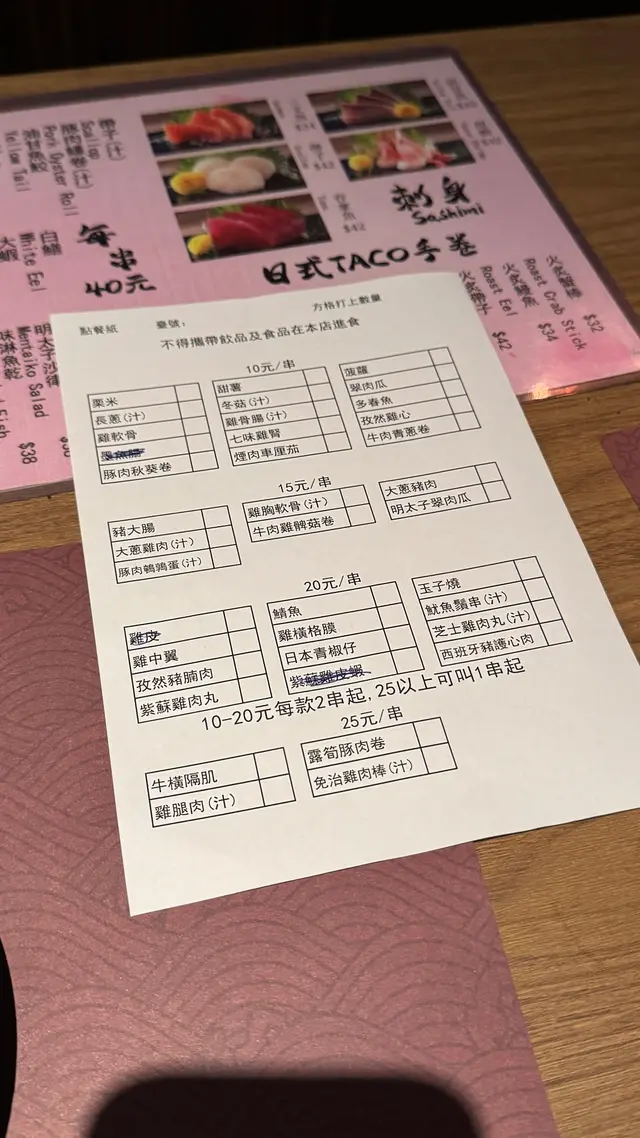 帶子(汁)
Scallop
豚肉蠔卷(汁)
Pork Oyster Roll
油甘魚鮫
Yellow Tail
白鱔
White Eel
大蝦
明太子沙律
Mentaiko Salad
$38
味淋魚乾
每串
40元
$42
刺身
Sashimi
日式TACO手卷
火炙蟹棒
Roast Crab Stick
$32
火炙鰻魚
Roast Eel
$34
火炙帶子
$42
點餐紙 臺號: 方格打上數量
不得攜帶飲品及食品在本店進食
10元/串
粟米
長蔥(汁)
雞軟骨
墨魚腸
豚肉秋葵卷
甜薯
冬菇(汁)
雞骨腸(汁)
七味雞腎
煙肉車厘茄
菠蘿
翠肉瓜
多春魚
孜然雞心
牛肉青蔥卷
15元/串
豬大腸
大蔥雞肉(汁)
豚肉鵪鶉蛋(汁)
雞胸軟骨(汁)
牛肉雞髀菇卷
大蔥豬肉
明太子翠肉瓜
20元/串
雞皮
雞中翼
孜然豬腩肉
紫蘇雞肉丸
鯖魚
雞橫格膜
日本青椒仔
紫蘇雞皮蝦
玉子燒
魷魚鬚串(汁)
芝士雞肉丸(汁)
西班牙豬護心肉
10-20元每款2串起,25以上可叫1串起
25元/串
牛橫隔肌
雞腿肉(汁)
露筍豚肉卷
免治雞肉棒(汁)